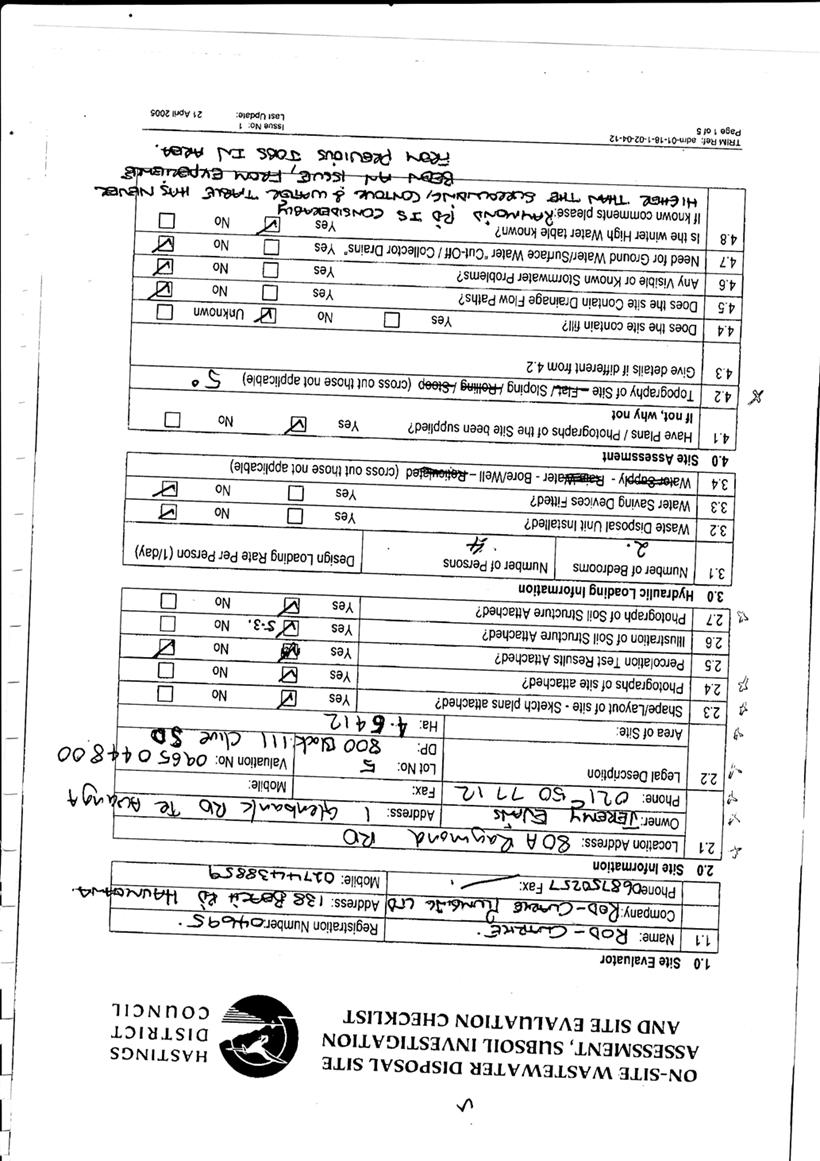 ON-SITE WASTEWATER DISPOSAL SITE
ASSESSMENT, SUBSOIL INVESTIGATION
AND SITE EVALUATION CHECKLIST
HASTINGS
DISTRICT
COUNCIL
1.0 Site Evaluator
1.1 Name: ROD-CURRIE Registration Number: 04695
Company: ROD-CURRIE PLUMBING LTD Address: 138 BEACH RD HAUMOANA
Phone: 068750257 Fax: Mobile: 0274438859
2.0 Site Information
2.1 Location Address: 80A Raymond RD
Owner: JEREMY EVANS Address: 1 Glenbank RD Te Awanga
Phone: 021 50 77 12 Fax: Mobile:
2.2 Legal Description Lot No: 5 Valuation No: 0965044800
DP: 800 Block: 111 Clive SD
Area of Site: Ha: 4.6412
2.3 Shape/Layout of site - Sketch plans attached? Yes No
2.4 Photographs of site attached? Yes No
2.5 Percolation Test Results Attached? Yes No
2.6 Illustration of Soil Structure Attached? Yes 5-3. No
2.7 Photograph of Soil Structure Attached? Yes No
3.0 Hydraulic Loading Information
3.1 Number of Bedrooms 2. Number of Persons 4 Design Loading Rate Per Person (1/day)
3.2 Waste Disposal Unit Installed? Yes No
3.3 Water Saving Devices Fitted? Yes No
3.4 Water Supply - Rain Water - Bore/Well – Reticulated (cross out those not applicable)
4.0 Site Assessment
4.1 Have Plans / Photographs of the Site been supplied? Yes No
If not, why not
4.2 Topography of Site – Flat / Sloping / Rolling / Steep (cross out those not applicable) 5°
4.3 Give details if different from 4.2
4.4 Does the site contain fill? Yes No Unknown
4.5 Does the site Contain Drainage Flow Paths? Yes No
4.6 Any Visible or Known Stormwater Problems? Yes No
4.7 Need for Ground Water/Surface Water "Cut-Off / Collector Drains" Yes No
4.8 Is the winter High Water table known? Yes No
If known comments please: RAYMOND RD IS CONSIDERABLY
HIGHER THAN THE SURROUNDING CONTOUR & WATER TABLE HAS NEVER
BEEN AN ISSUE, FROM EXPERIENCE
FROM PREVIOUS JOBS IN AREA.
TRIM Ref: adm-01-18-1-02-04-12 Issue No: 1
Page 1 of 5 Last Update: 21 April 2005